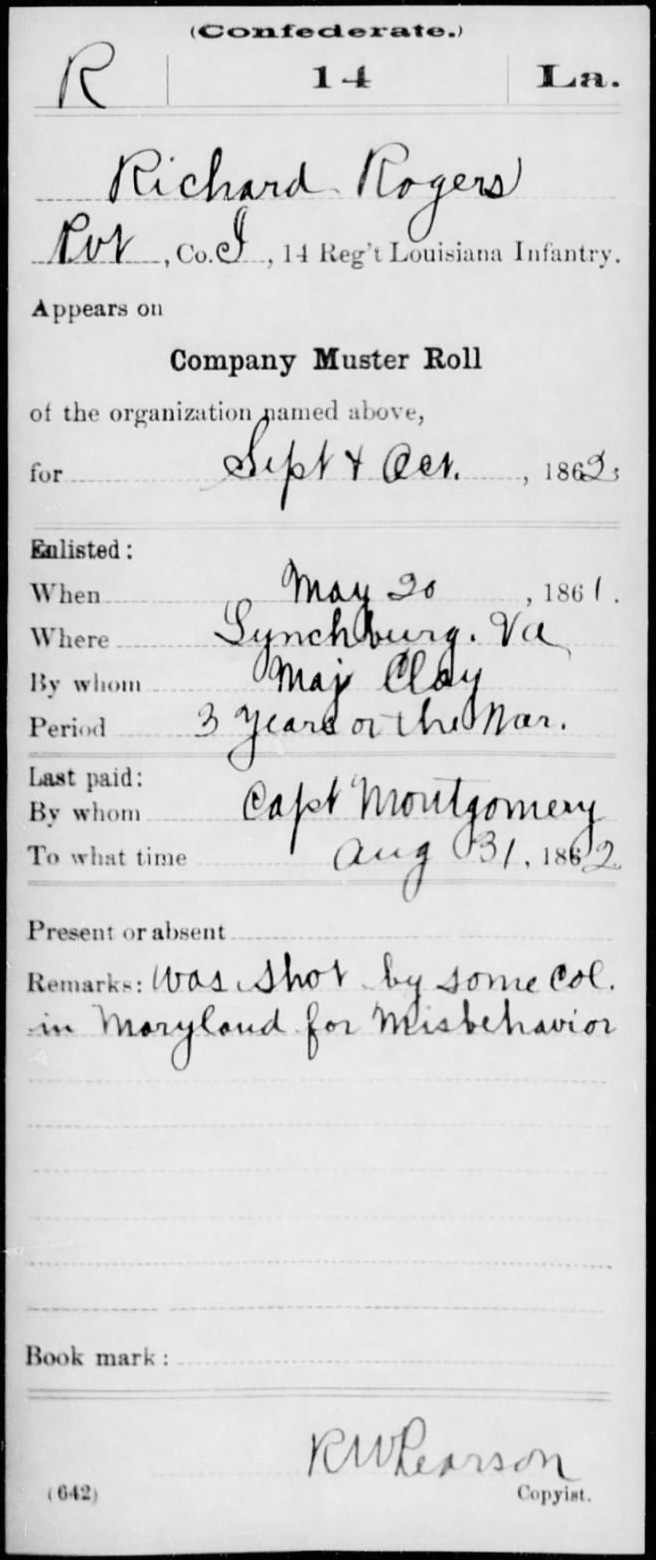 (Confederate.)
R | 14 | La.
Richard Rogers
Pvt, Co. I, 14 Reg't Louisiana Infantry.
Appears on
Company Muster Roll
of the organization named above,
for Sept & Oct., 1862.
Enlisted:
When May 20, 1861.
Where Lynchburg. Va
By whom Maj Clay
Period 3 years or the War.
Last paid:
By whom Capt Montgomery
To what time Aug 31, 1862
Present or absent
Remarks: Was shot by some Col.
in Maryland for Misbehavior
Book mark:
R W Pearson
(642) Copyist.